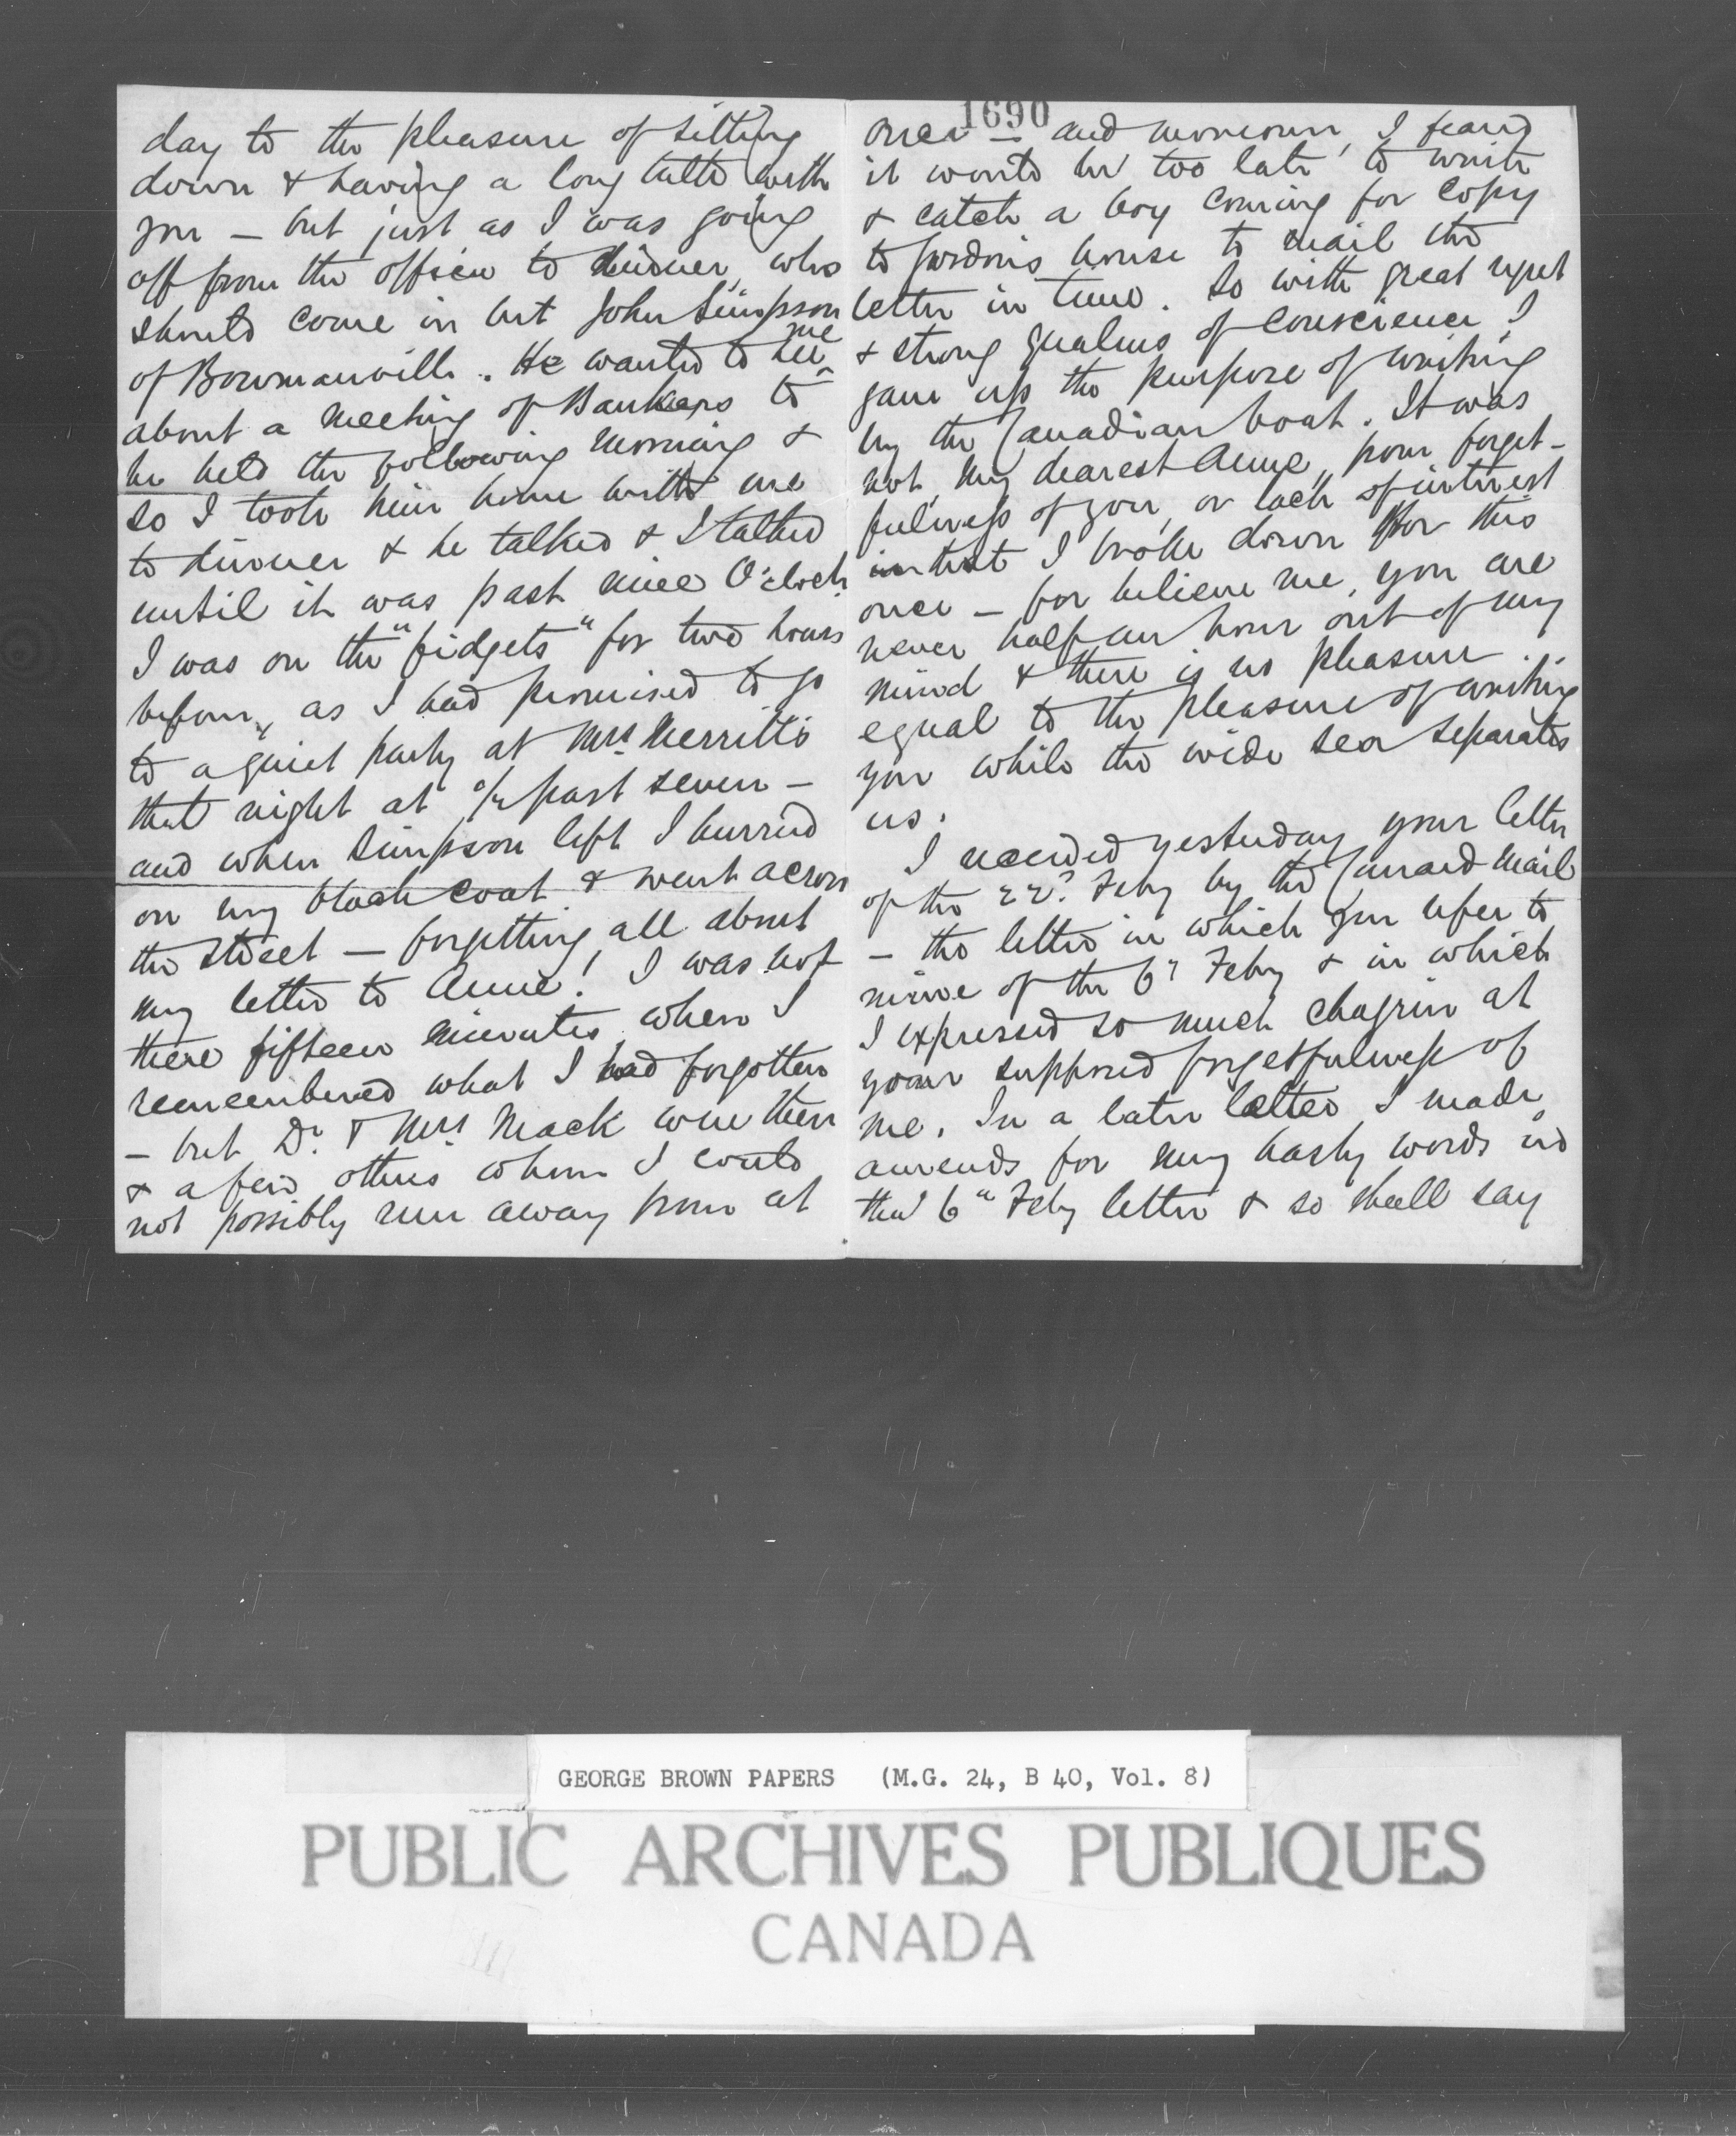 day to the pleasure of sitting
down & having a long talk with
you — but just as I was going
off from the office to dinner, who
should come in but John Simpson
of Bowmanville. He wanted to see me
about a meeting of Bankers to
be held the following morning &
so I took him home with me
to dinner & he talked & I talked
until it was past nine O'clock.
I was on the "fidgets" for two hours
before, as I had promised to go
to a quiet party at Mrs. Merritt's
that night at ½ past seven —
and when Simpson left I hurried
on my black coat & went across
the street — forgetting all about
my letter to Anne! I was not
there fifteen minutes when I
remembered what I had forgotten
— but Dr. & Mrs. Mack were there
& a few others whom I could
not possibly run away from at
1690
once — and moreover, I feared
it would be too late to write
& catch a boy coming for copy
to Gordon's house to mail the
letter in time. So with great regret
& strong qualms of conscience I
gave up the purpose of writing
by the Canadian boat. It was
not, my dearest Anne, from forget-
fulness of you, or lack of interest
in that I broke down for this
once — for believe me, you are
never half an hour out of my
mind & there is no pleasure
equal to the pleasure of writing
you while the wide sea separates
us.
I received yesterday your letter
of the 22d Feby by the Cunard mail
— the letter in which you refer to
mine of the 6" Feby & in which
I expressed so much chagrin at
your supposed forgetfulness of
me. In a later letter I made
amends for my hasty words in
the 6" Feby letter & so shall say
GEORGE BROWN PAPERS (M.G. 24, B 40, Vol. 8)
PUBLIC ARCHIVES PUBLIQUES
CANADA